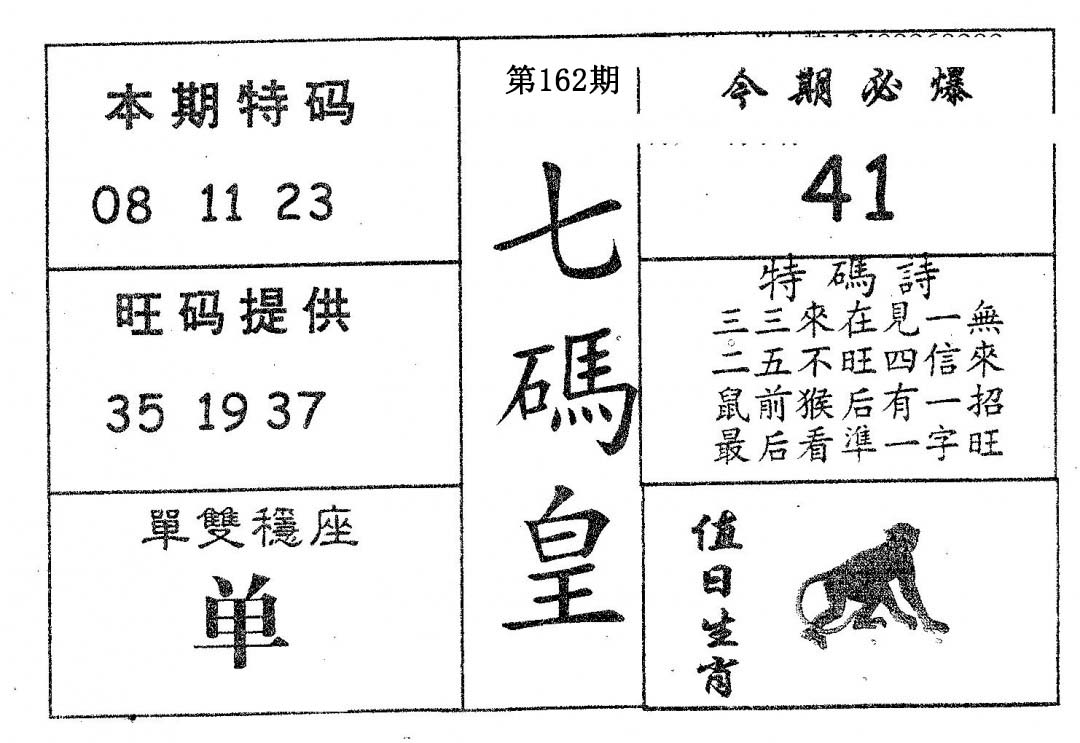 本期特码
08 11 23
旺码提供
35 19 37
單雙穩座
单
第162期
七碼皇
今期必爆
41
特碼詩
三三來在見一無
二五不旺四信來
鼠前猴后有一招
最后看準一字旺
值日生肖